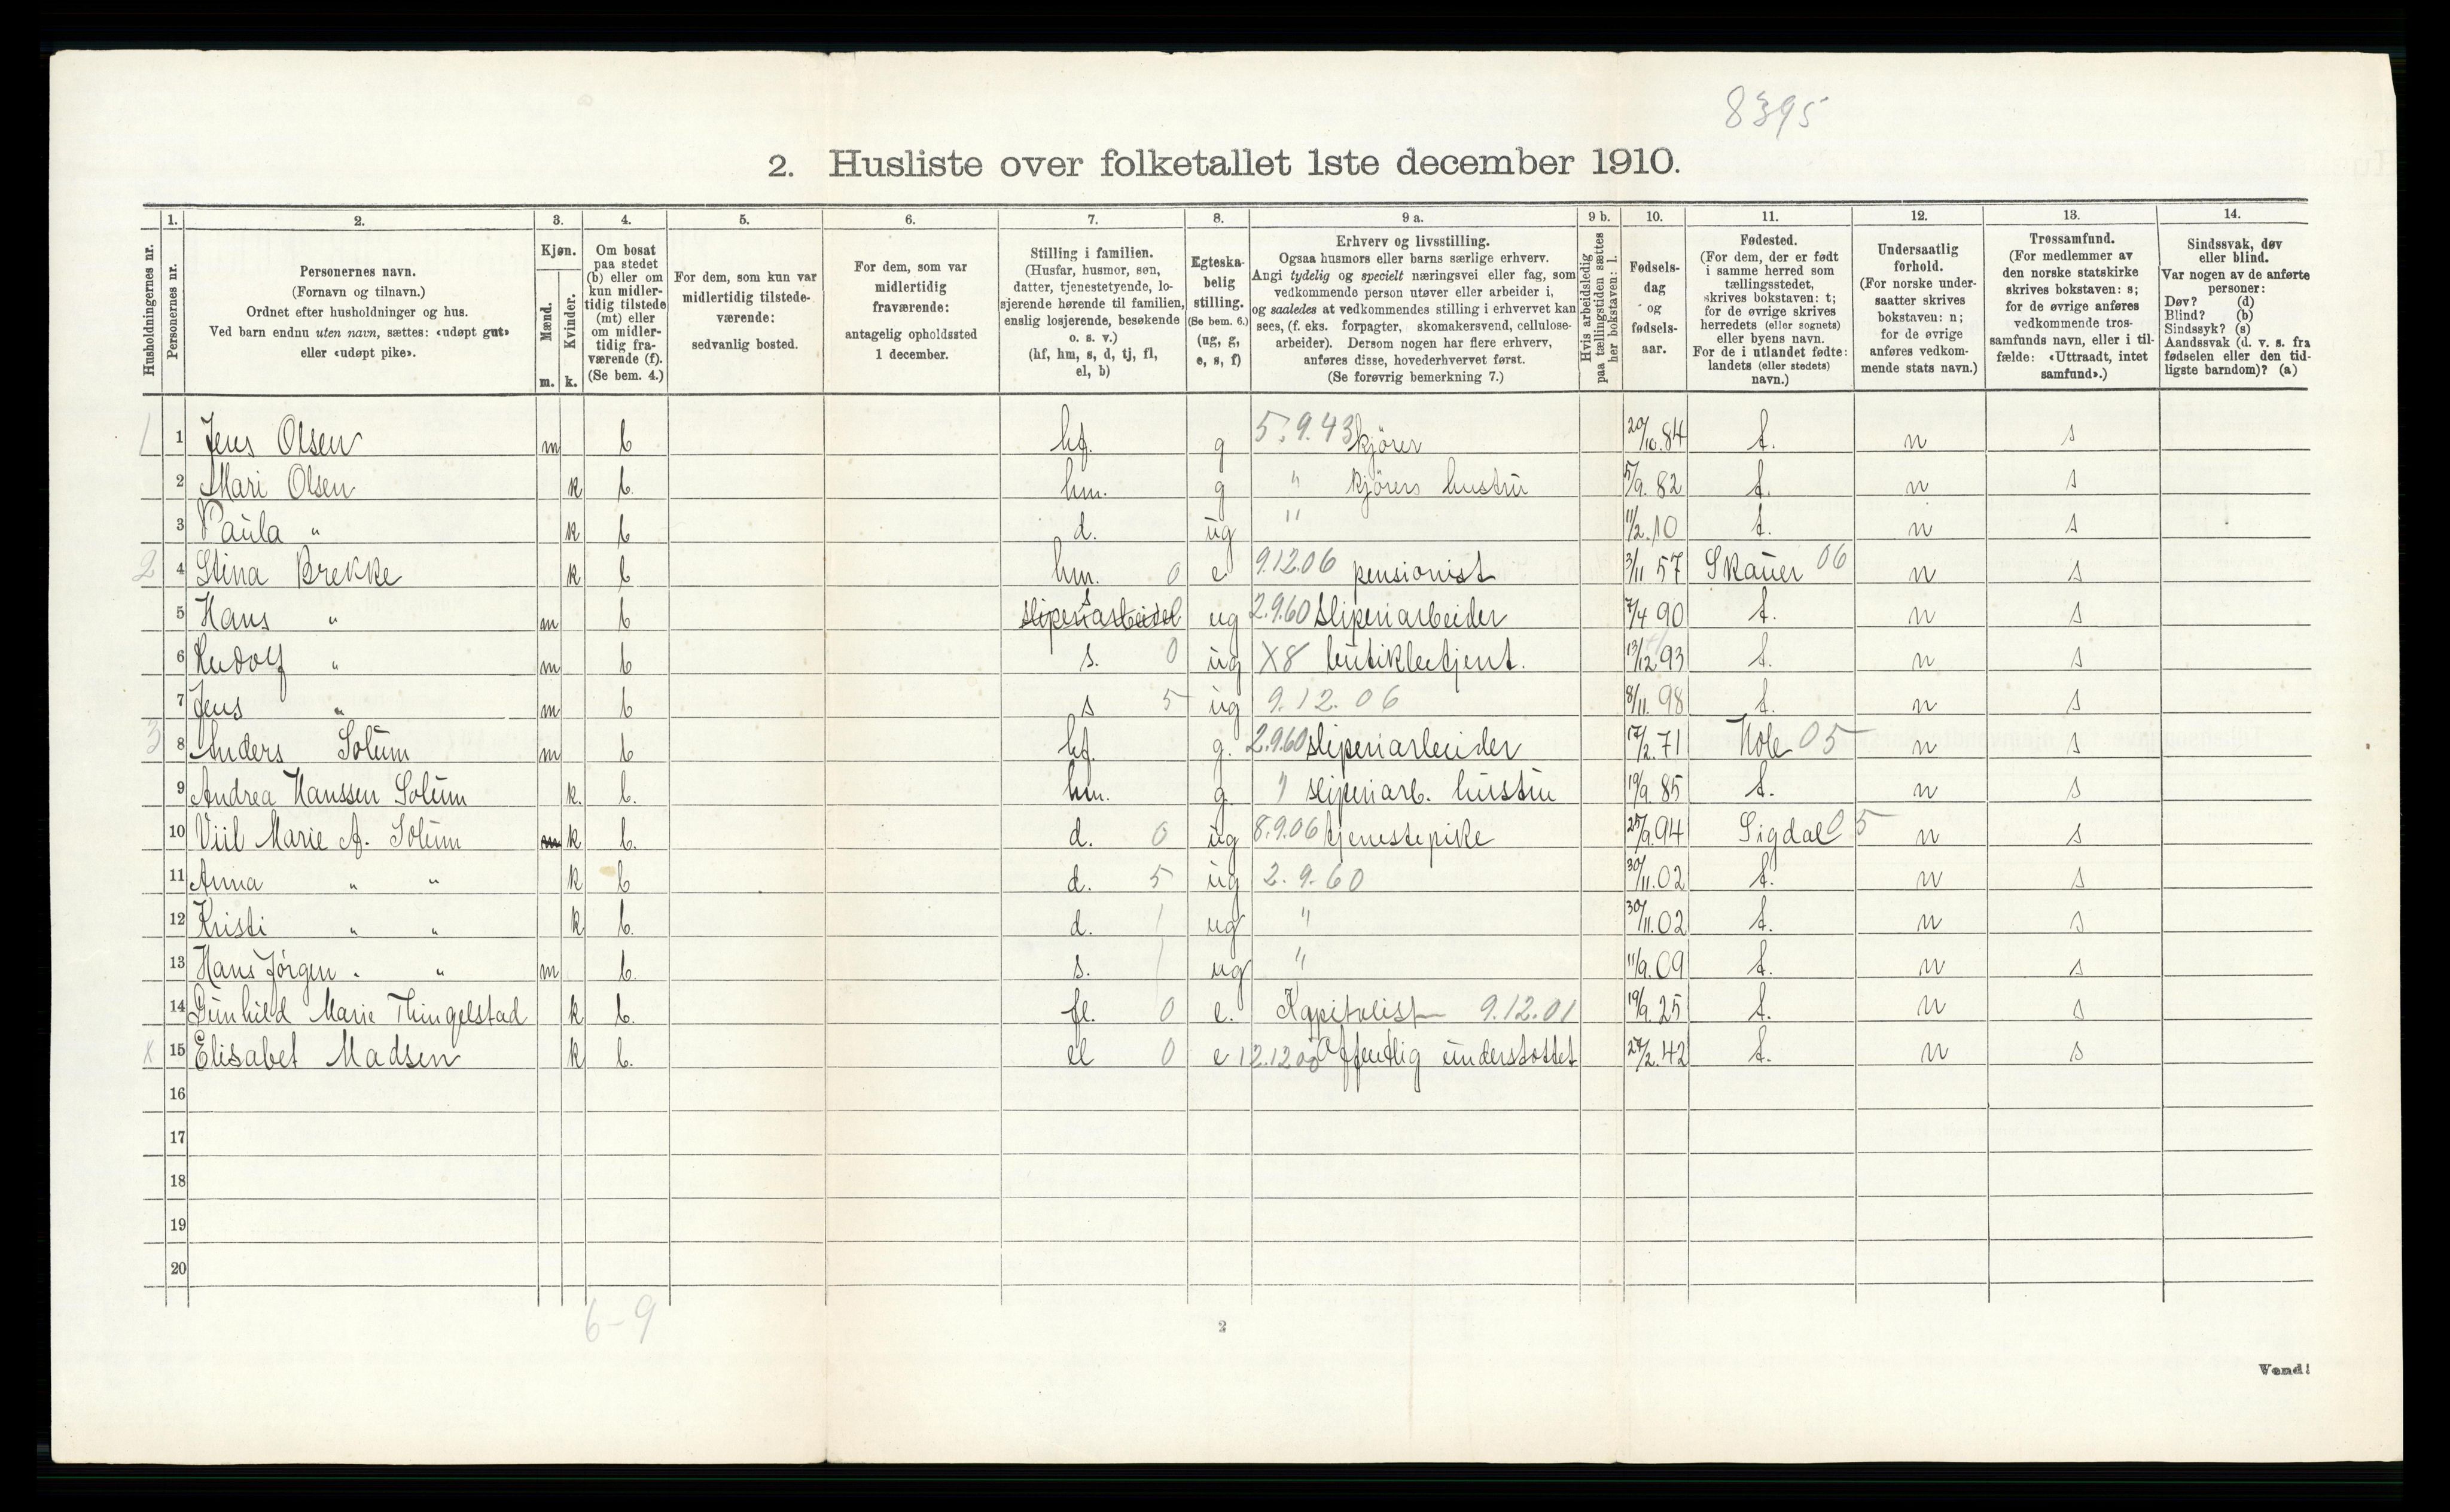 8395
2. Husliste over folketallet 1ste december 1910.
Husholdningernes nr.
1. Personernes nr.
2. Personernes navn. (Fornavn og tilnavn.) Ordnet efter husholdninger og hus. Ved barn endnu uten navn, sættes: «udøpt gut» eller «udøpt pike».
3. Kjøn. Mænd. m. Kvinder. k.
4. Om bosat paa stedet (b) eller om kun midlertidig tilstede (mt) eller om midlertidig fraværende (f). (Se bem. 4.)
5. For dem, som kun var midlertidig tilstedeværende: sedvanlig bosted.
6. For dem, som var midlertidig fraværende: antagelig opholdssted 1 december.
7. Stilling i familien. (Husfar, husmor, søn, datter, tjenestetyende, losjerende hørende til familien, enslig losjerende, besøkende o. s. v.) (hf, hm, s, d, tj, fl, el, b)
8. Egteskabelig stilling. (Se bem. 6.) (ug, g, e, s, f)
9 a. Erhverv og livsstilling. Ogsaa husmors eller barns særlige erhverv. Angi tydelig og specielt næringsvei eller fag, som vedkommende person utøver eller arbeider i, og saaledes at vedkommendes stilling i erhvervet kan sees, (f. eks. forpagter, skomakersvend, cellulosearbeider). Dersom nogen har flere erhverv, anføres disse, hovederhvervet først. (Se forøvrig bemerkning 7.)
9 b. Hvis arbeidsledig paa tællingstiden sættes her bokstaven: l.
10. Fødselsdag og fødselsaar.
11. Fødested. (For dem, der er født i samme herred som tællingsstedet, skrives bokstaven: t; for de øvrige skrives herredets (eller sognets) eller byens navn. For de i utlandet fødte: landets (eller stedets) navn.)
12. Undersaatlig forhold. (For norske undersaatter skrives bokstaven: n; for de øvrige anføres vedkommende stats navn.)
13. Trossamfund. (For medlemmer av den norske statskirke skrives bokstaven: s; for de øvrige anføres vedkommende trossamfunds navn, eller i tilfælde: «Uttraadt, intet samfund».)
14. Sindssvak, døv eller blind. Var nogen av de anførte personer: Døv? (d) Blind? (b) Sindssyk? (s) Aandssvak (d. v. s. fra fødselen eller den tidligste barndom)? (a)
1 1 Jens Olsen m b hf. g 5.9.43 kjører 20/10.84 t. n s
2 Mari Olsen k b. hm. g " kjørers hustru 5/9.82 t. n s
3 Paula " k b d. ug " 11/2.10 t. n s
2 4 Stina Brekke k b hm. 0 e 9.12.06 pensionist 3/11 57 Skauer 06 n s
5 Hans " m b sliperiarbeidel s ug 2.9.60 sliperiarbeider 7/4 90 t. n s
6 Rudolf " m b s. 0 ug X8 butikbetjent. 13/12 93 t. n s
7 Jens " m b s 5 ug 9.12.06 8/11.98 t. n s
3 8 Anders Solum m b hf. g. 2.9.60 sliperiarbeider 17/2.71 Hole 05 n s
9 Andrea Hanssen Solum k. b. hm. g. " sliperiarb. hustru 19/9 85 t. n s
10 Viil Marie A. Solum m k b. d. 0 ug 8.9.06 tjenestepike 25/9.94 Sigdal 05 n s
11 Anna " " k b d. 5 ug 2.9.60 30/11.02 t. n s
12 Kristi " " k b. d. 1 ug " 30/11.02 t. n s
13 Hans Jörgen . " m b. s. 1 ug " 11/9.09 t. n s
14 Gunhild Marie Thingelstad k b. fl. 0 e. Kapitalist 9.12.01 19/9.25 t. n s
x 15 Elisabet Madsen k b. el 0 e 12.12.00 Offentlig understøttet 27/2.42 t. n s
16
17
18
19
20
6-9
2
Vend!